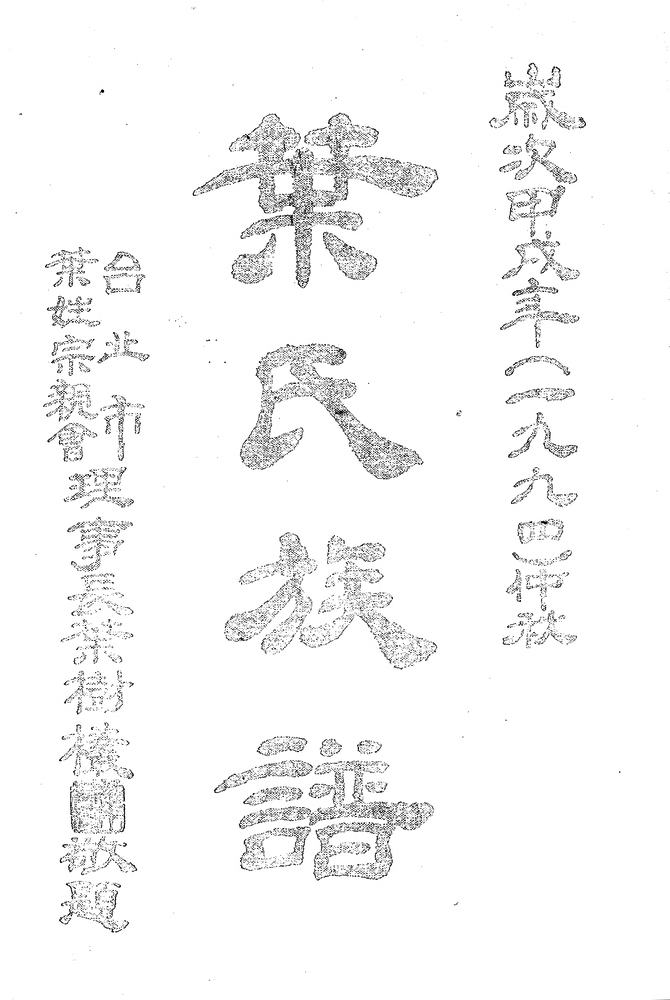 歲次甲戌年(一九九四)仲秋
葉氏族譜
台北市
葉姓宗親會
理事長葉樹
敬題